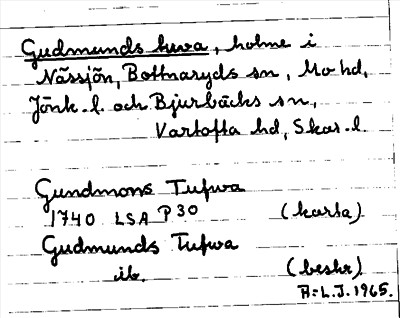 Gudmunds kuva, holme i
Nässjön, Bottnaryds sn, Mo hd,
Jönk. l. och Bjurbäcks sn,
Vartofta hd, Skar. l.
Gundmons Tufwa
1740 LSA P30 (karta)
Gudmunds Tufwa
ib. (beskr)
A:L.J. 1965.